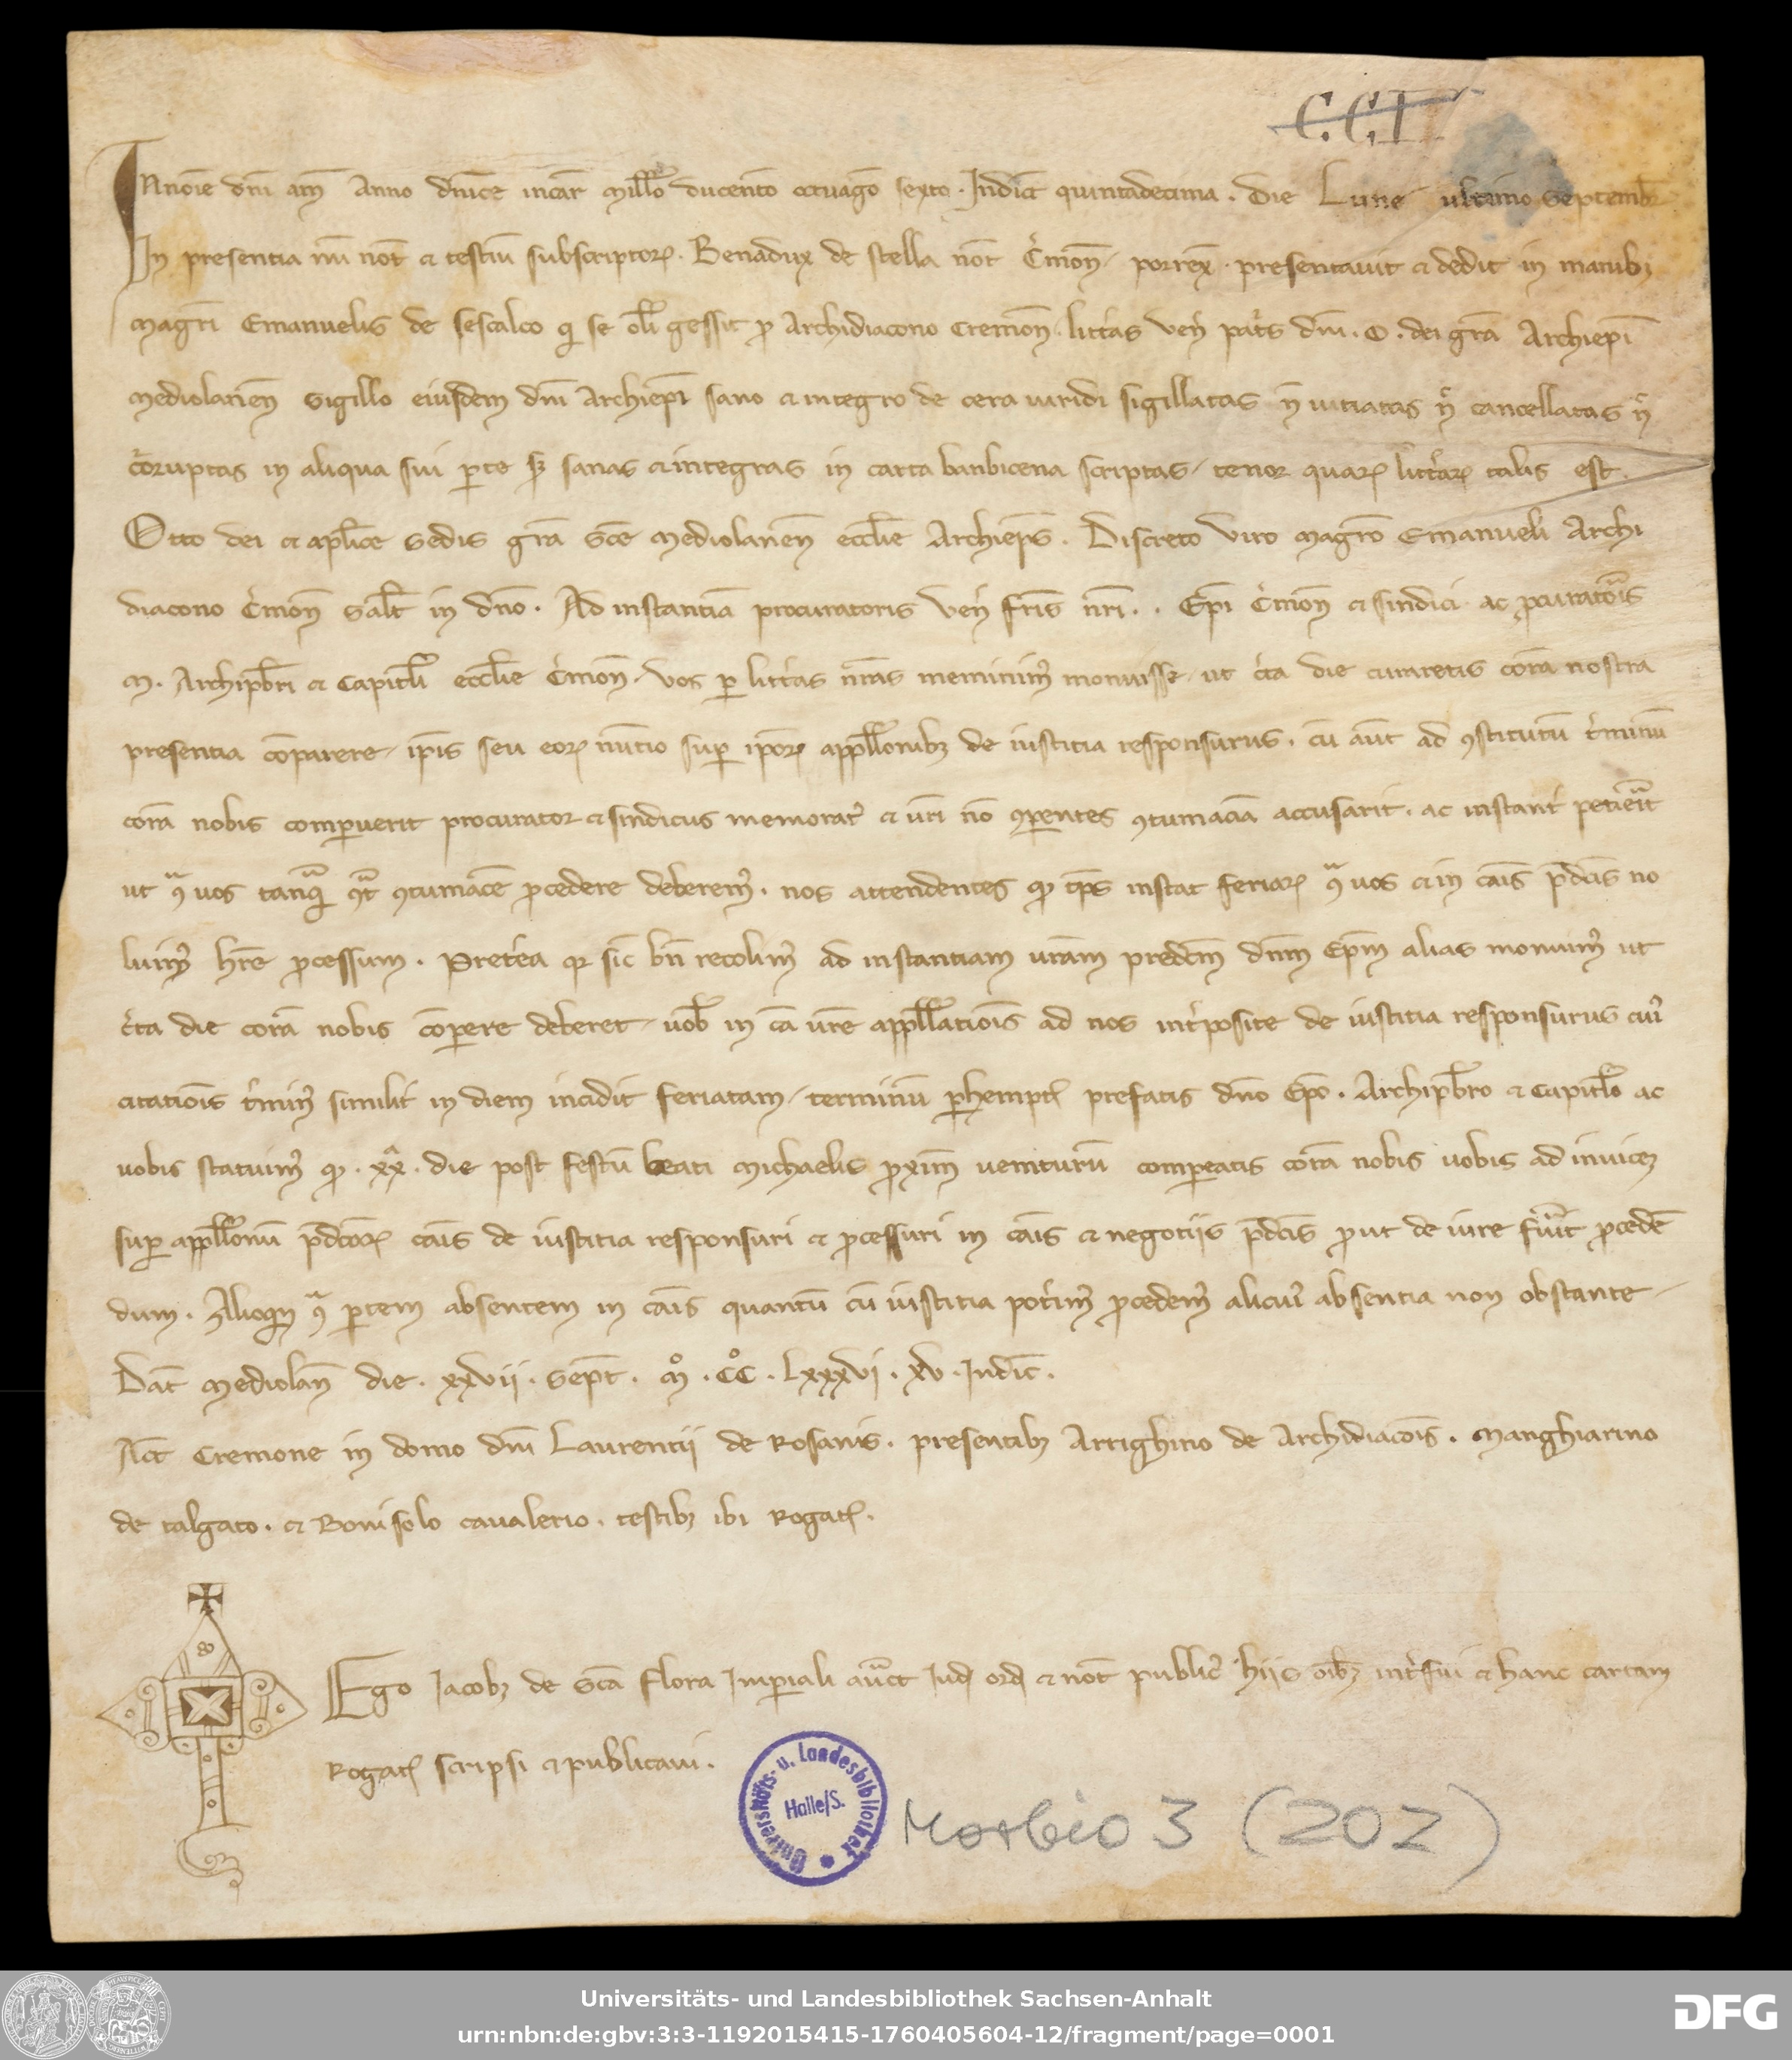 CCI
In noīe dn̄i am̄ Anno dn̄ice incar̄ mill̄o ducento octuagō sexto. Indic̄t quintadecima. die Lune ultimo Septembr̄
In presentia mī not̄ et testiū subscriptoꝝ. Benadux de stella not̄ Cr̄mon̄ porrex̄. presentauit et dedit in manibꝫ
magr̄i Emanuelis de sescalco qi se oli gessit ꝓ Archidiacono Cremon̄. litt̄as ven̄ pat̄s dn̄i. O. dei gr̄a Archiepī
mediolanen̄ sigillo eiusdem dn̄i Archiepī sano et integro de cera uiridi sigillatas n̄ uitiatas n̄ cancellatas n̄
cōruptas in aliqua sui ꝑte sꝫ sanas et integras in carta banbicena scriptas, tenor quaꝝ litt̄aꝝ talis est.
Otto dei et apl̄ice sedis gr̄a sc̄e mediolanen̄ eccl̄ie Archiep̄s. Discreto viro magr̄o Emanueli Archi
diacono Cr̄mon̄ Salt̄ in dn̄o. Ad instantiā procuratoris ven̄ fr̄is nr̄i.. Ep̄i Cr̄mon̄ et sindici ac ꝓcuratoīs
M. Archipbr̄i et Capitl̄i eccl̄ie Cr̄mon̄, vos ꝑ litt̄as nr̄as meminimꝰ monuisse, ut c̄ta die curaretis corā nostra
presentia cōparere, ip̄is seu eoꝝ nuntio suꝑ ip̄oꝝ appell̄onibꝫ de iustitia responsurus. cū aut̄ ad ꝯstitutū t̄minū
corā nobis comparuerit procurator et sindicus memoratꝰ et ur̄i nō ꝯparentes ꝯtumaciā accusarit. ac instant̄ petierit
ut ꝯͣ uos tanqͣ ꝯͣt ꝯtumacē ꝓcedere deberemꝰ. nos attendentes qꝫ tp̄s instat feriaꝝ ꝯͣ uos et in cāis p̄dc̄is no
luimꝰ hr̄e ꝓcessum. Preter̄a qꝛ sic̄ bn̄ recolimꝰ ad instantiam ur̄am predc̄m dn̄m Ep̄m alias monuimꝰ ut
c̄ta die corā nobis cōꝑere deberet, uob̄ in cā ur̄e appell̄atiōis ad nos int̄posite de iustitia responsurus cuiꝰ
citatiōis t̄minꝰ similit̄ in diem incidit feriatam, terminū ꝑhemptꝭ prefatis dn̄o Ep̄o. Archipbr̄o et Capitl̄o ac
uobis statuimꝰ qꝫ. xxͣ. die post festū beati Michaelis ꝓxim̄ uenturū compeatis corā nobis uobis ad inuicēꝫ
suꝑ appell̄onū p̄dc̄oꝝ cāis de iustitia responsuri et ꝓcessuri in cāis et negotiis p̄dc̄is ꝓut de iure fu̅it ꝓcedē
dum. Alioqn̄ ꝯͣ ꝑtem absentem in cāis quantū cū iustitia pot̄imꝰ ꝓcedemꝰ alicuiꝰ absentia non obstante,
Dat̄ Mediolan̄ die. xxvii. Sept̄. M°. CC°. Lxxxvi. xv. Indic̄.
Act̄ Cremone in domo dn̄i Laurentii de Rosanis. presentibꝫ Arrighino de Archidiacōis. Manghiarino
de talgato. et Bonisolo caualerio. testibꝫ ibi Rogatꝭ.
Ego Jacobꝫ de Sc̄a flora Imꝑiali auͨt Iud̄ ord̄ et not̄ public̄ hiis oībꝫ int̄fui et hanc cartam
Rogatꝭ scripsi et publicaui.
Universitäts- u. Landesbibliothek
Halle/S.
Morbio 3 (202)
Universitäts- und Landesbibliothek Sachsen-Anhalt
urn:nbn:de:gbv:3:3-1192015415-1760405604-12/fragment/page=0001
DFG